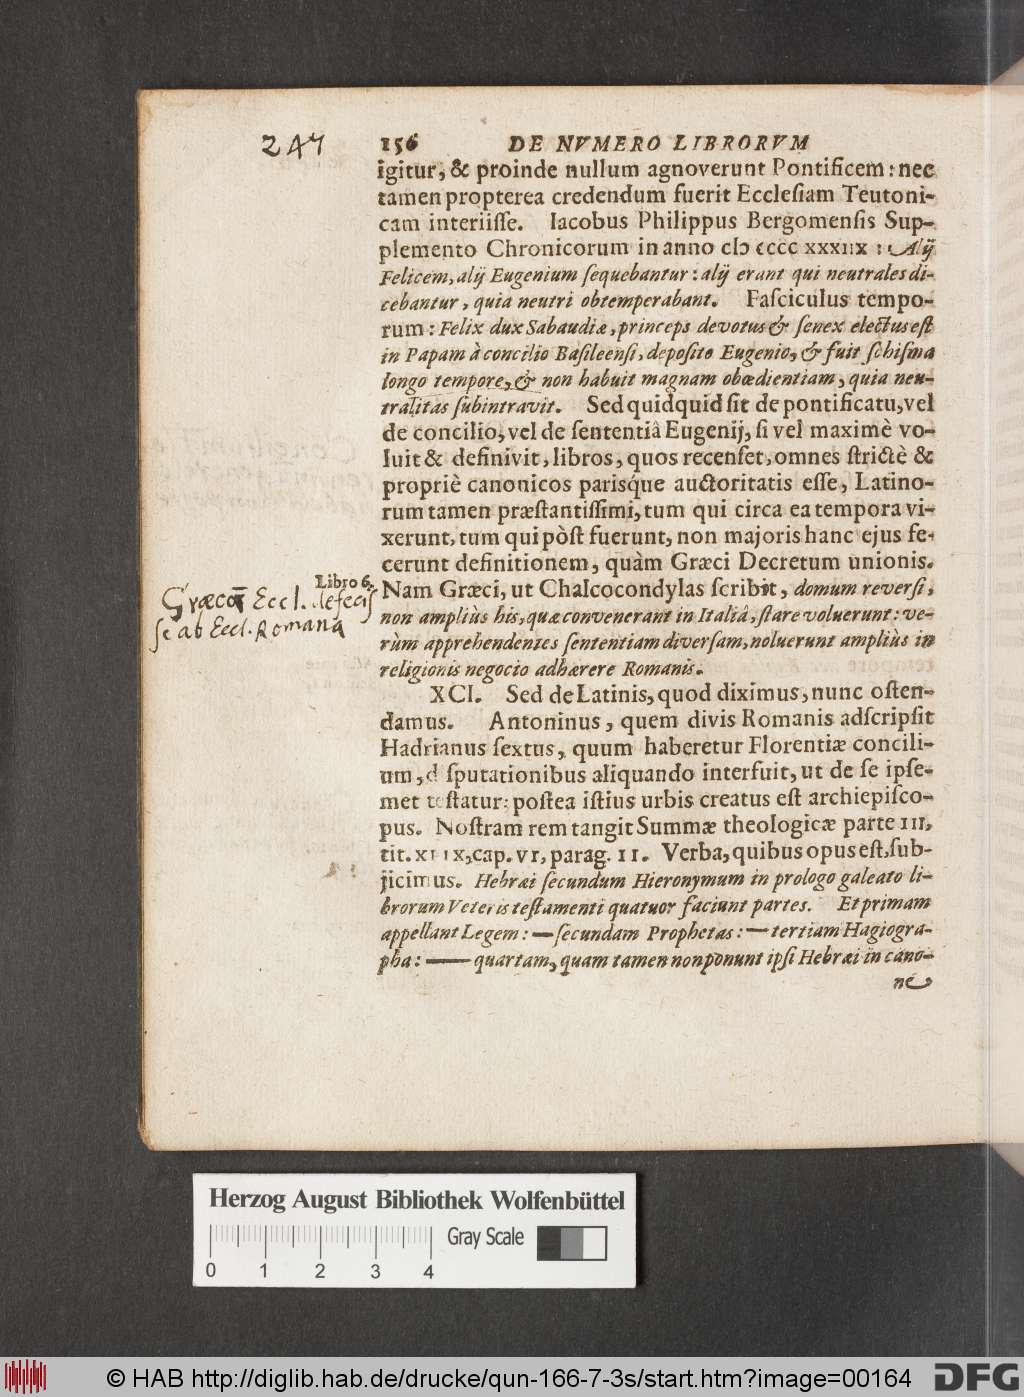 247
156 DE NVMERO LIBRORVM
igitur, & proinde nullum agnoverunt Pontificem: nec
tamen propterea credendum fuerit Ecclesiam Teutoni-
cam interiisse. Iacobus Philippus Bergomensis Sup-
plemento Chronicorum in anno cIↄ cccc xxxiix: Alij
Felicem, alij Eugenium sequebantur: alij erant qui neutrales di-
cebantur, quia neutri obtemperabant. Fasciculus tempo-
rum: Felix dux Sabaudiæ, princeps devotus & senex electus est
in Papam à concilio Basileensi, deposito Eugenio, & fuit schisma
longo tempore, & non habuit magnam obœdientiam, quia neu-
tralitas subintravit. Sed quidquid sit de pontificatu, vel
de concilio, vel de sententiâ Eugenij, si vel maximè vo-
luit & definivit, libros, quos recenset, omnes strictè &
propriè canonicos parisque auctoritatis esse, Latino-
rum tamen præstantissimi, tum qui circa ea tempora vi-
xerunt, tum qui pòst fuerunt, non majoris hanc ejus fe-
cerunt definitionem, quàm Græci Decretum unionis.
Libro 6.
Græcor̄ Eccl. defecis
se ab Eccl. Romana
Nam Græci, ut Chalcocondylas scribit, domum reversi,
non ampliùs his, quæ convenerant in Italiâ, stare voluerunt: ve-
rùm apprehendentes sententiam diversam, noluerunt ampliùs in
religionis negocio adhærere Romanis.
XCI. Sed de Latinis, quod diximus, nunc osten-
damus. Antoninus, quem divis Romanis adscripsit
Hadrianus sextus, quum haberetur Florentiæ concili-
um, d sputationibus aliquando interfuit, ut de se ipse-
met testatur: postea istius urbis creatus est archiepisco-
pus. Nostram rem tangit Summæ theologicæ parte III,
tit. XIIX, cap. VI, parag. II. Verba, quibus opus est, sub-
jicimus. Hebræi secundum Hieronymum in prologo galeato li-
brorum Veteris testamenti quatuor faciunt partes. Et primam
appellant Legem: — secundam Prophetas: — tertiam Hagiogra-
pha: — quartam, quam tamen non ponunt ipsi Hebræi in cano-
ne
Herzog August Bibliothek Wolfenbüttel
Gray Scale
0 1 2 3 4
© HAB http://diglib.hab.de/drucke/qun-166-7-3s/start.htm?image=00164
DFG